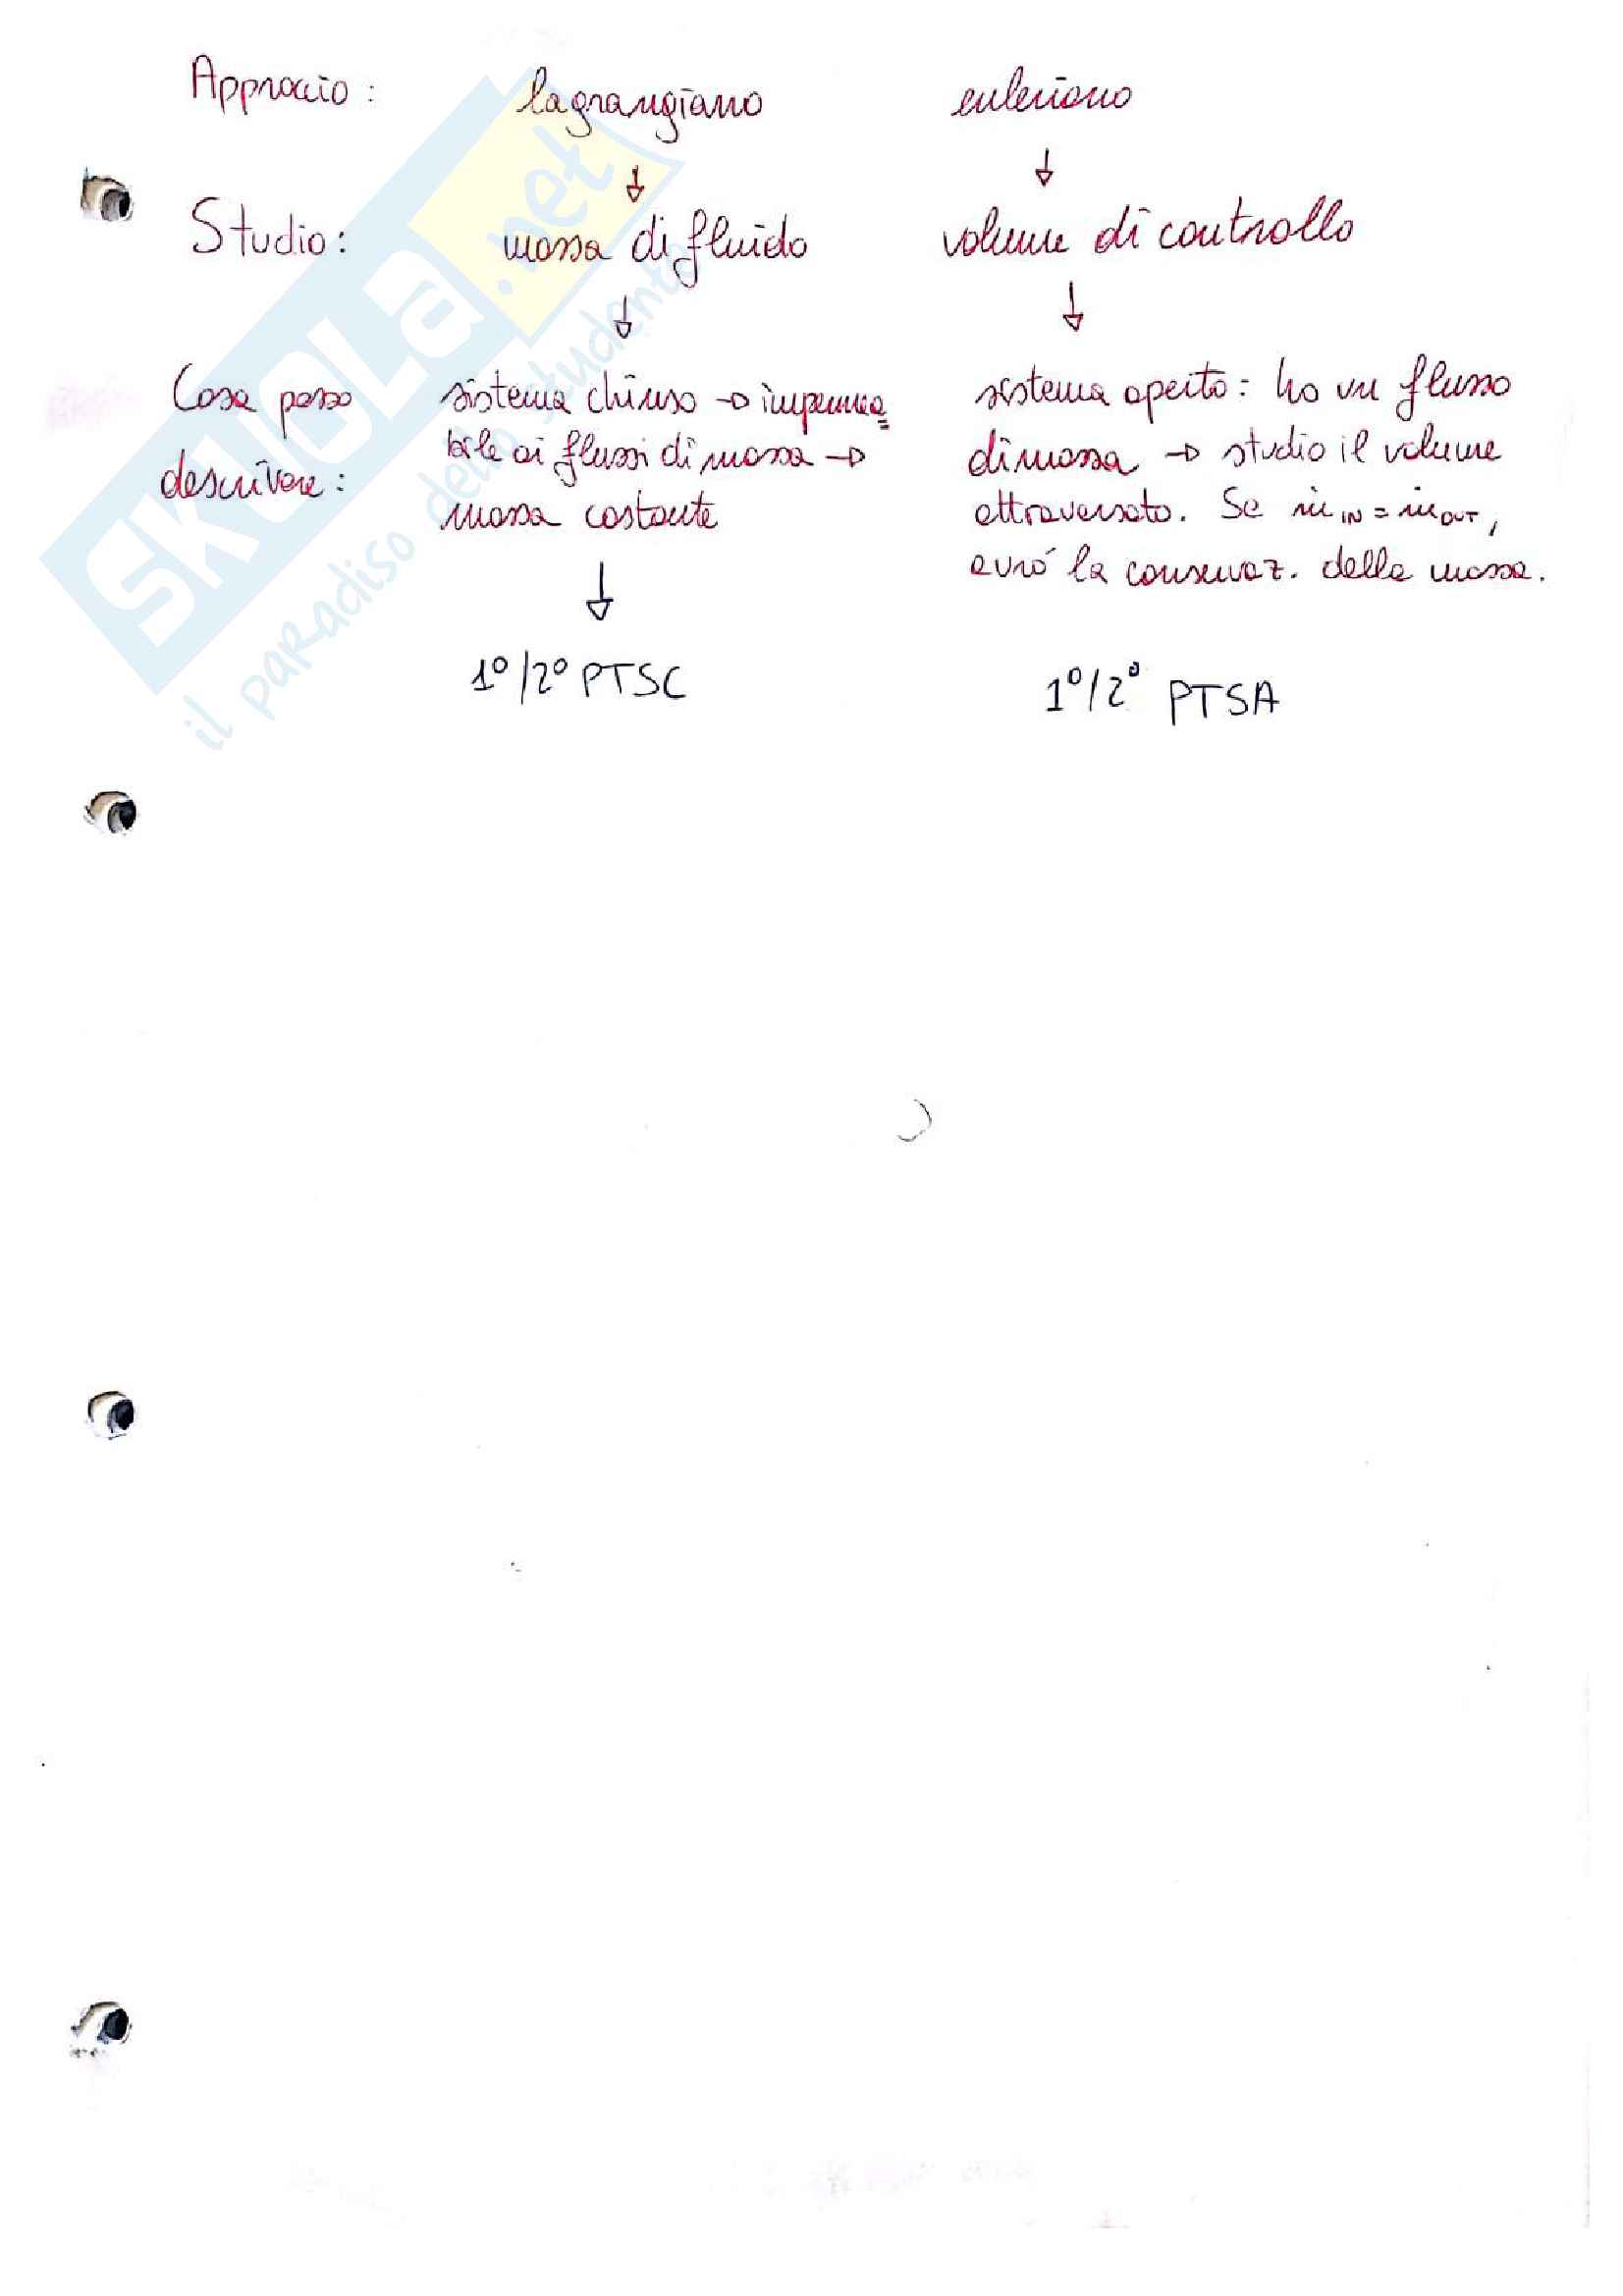 Approccio: lagrangiano euleriano
Studio: massa di fluido volume di controllo
Cosa posso sistema chiuso → impermea= sistema aperto: ho un flusso
descrivere: bile ai flussi di massa → di massa → studio il volume
massa costante attraversato. Se ṁ IN = ṁ OUT,
avrò la conservaz. della massa.
1°/2° PTSC 1°/2° PTSA
SKUOLA.net
il paradiso dello studente